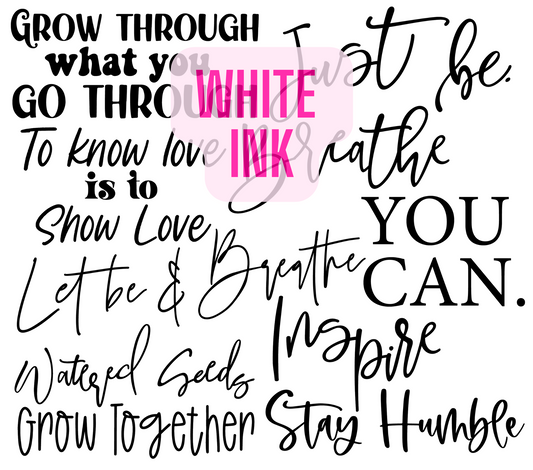 Grow through
what you
go through
To know love
is to
Show Love
Just be.
Breathe
WHITE
INK
YOU
CAN.
Let be & Breathe
Inspire
Watered Seeds
Grow Together
Stay Humble